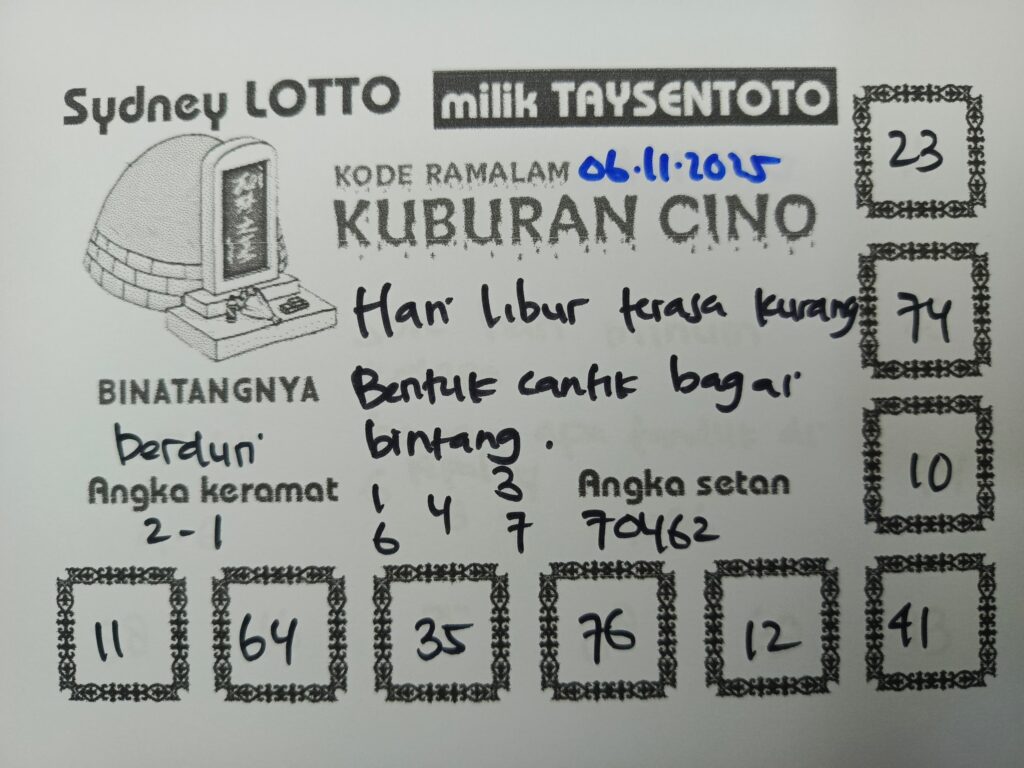 Sydney LOTTO
milik TAYSENTOTO
KODE RAMALAM 06.11.2025
KUBURAN CINO
Hari libur terasa kurang
Bentuk cantik bagai
bintang.
BINATANGNYA
berduri
Angka keramat
2-1
1 3
4
6 7
Angka setan
70462
23
74
10
11 64 35 76 12 41